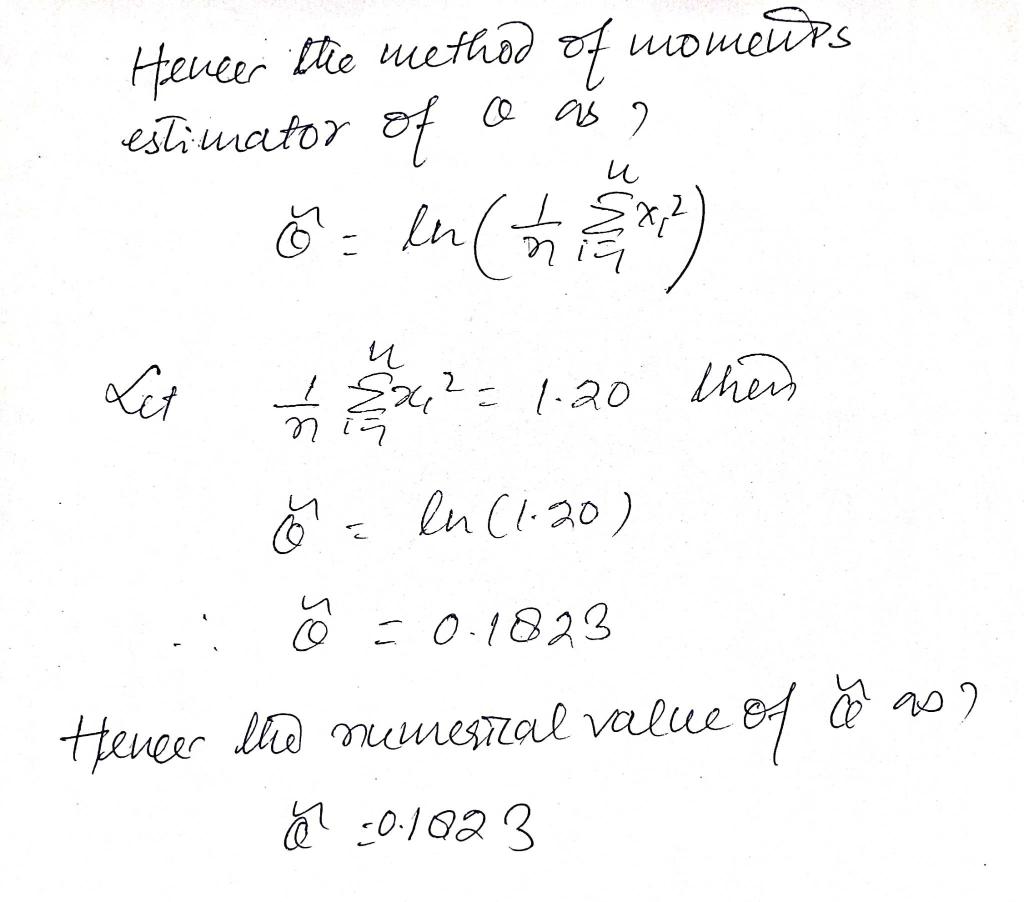 Hence the method of moments
estimator of θ as,
θ̃ = ln(1/n Σᵢ₌₁ⁿ xᵢ²)
Let 1/n Σᵢ₌₁ⁿ xᵢ² = 1.20 then
θ̃ = ln(1.20)
∴ θ̃ = 0.1823
Hence the numerical value of θ̃ as,
θ̃ = 0.1823